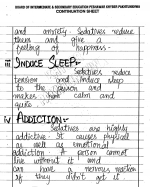 BOARD OF INTERMEDIATE & SECONDARY EDUCATION PESHAWAR KHYBER PAKHTUNKHWA
CONTINUATION SHEET
and anxiety. Sedatives reduce
them and give a
feeling of happiness.
iii INDUCE SLEEP:-
Sedatives reduce
tension and induce sleep
to the person and
makes him calm and
quite.
iv ADDICTION:-
Sedatives are highly
addictive. It causes physical
as well as emotional
addiction. A person cannot
live without it and
can have a nervous reaction
if they didn't get it.